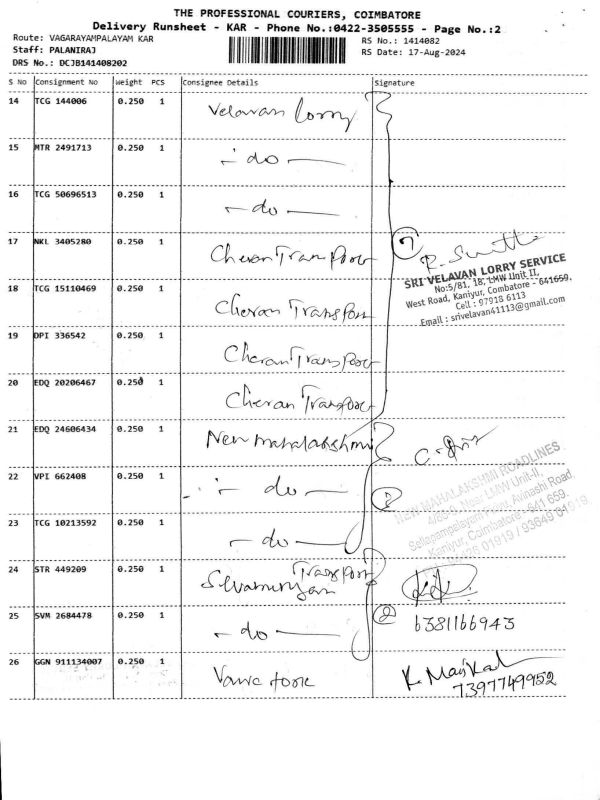 THE PROFESSIONAL COURIERS, COIMBATORE
Delivery Runsheet - KAR - Phone No.:0422-3505555 - Page No.:2
Route: VAGARAYAMPALAYAM KAR
RS No.: 1414082
Staff: PALANIRAJ
RS Date: 17-Aug-2024
DRS No.: DCJB141408202
S No Consignment No Weight PCS Consignee Details Signature
14 TCG 144006 0.250 1 Velavan lorry
15 MTR 2491713 0.250 1 - do -
16 TCG 50696513 0.250 1 - do -
17 NKL 3405280 0.250 1 Cheran Transport 7
SRI VELAVAN LORRY SERVICE
No:5/81, 18, LMW Unit II,
West Road, Kaniyur, Coimbatore - 641659.
Cell : 97918 6113
Email : srivelavan41113@gmail.com
18 TCG 15110469 0.250 1 Cheran Transport
19 DPI 336542 0.250 1 Cheran Transport
20 EDQ 20206467 0.250 1 Cheran Transport
21 EDQ 24606434 0.250 1 New mahalakshmi
NEW MAHALAKSHMI ROADLINES
Near LMW Unit-II,
Avinashi Road,
Kaniyur, Coimbatore - 641 659.
01919 / 93649 01919
22 VPI 662408 0.250 1 - do -
23 TCG 10213592 0.250 1 - do -
24 STR 449209 0.250 1 Transport
25 SVM 2684478 0.250 1 - do - 2
6381166943
26 GGN 911134007 0.250 1
7397749952